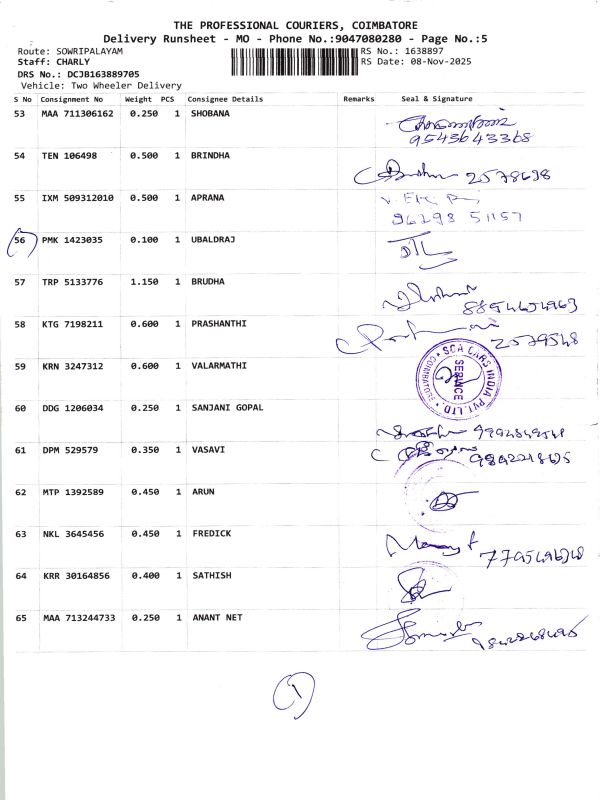 THE PROFESSIONAL COURIERS, COIMBATORE
Delivery Runsheet - MO - Phone No.:9047080280 - Page No.:5
Route: SOWRIPALAYAM RS No.: 1638897
Staff: CHARLY RS Date: 08-Nov-2025
DRS No.: DCJB163889705
Vehicle: Two Wheeler Delivery
S No Consignment No Weight PCS Consignee Details Remarks Seal & Signature
53 MAA 711306162 0.250 1 SHOBANA
9543643368
54 TEN 106498 0.500 1 BRINDHA 2578698
55 IXM 509312010 0.500 1 APRANA
96298 51157
56 PMK 1423035 0.100 1 UBALDRAJ
57 TRP 5133776 1.150 1 BRUDHA
8854654963
58 KTG 7198211 0.600 1 PRASHANTHI 2579548
59 KRN 3247312 0.600 1 VALARMATHI
SCA CARS INDIA PVT.LTD. SERVICE COIMBATORE
60 DDG 1206034 0.250 1 SANJANI GOPAL
61 DPM 529579 0.350 1 VASAVI
62 MTP 1392589 0.450 1 ARUN
63 NKL 3645456 0.450 1 FREDICK
64 KRR 30164856 0.400 1 SATHISH
65 MAA 713244733 0.250 1 ANANT NET
1